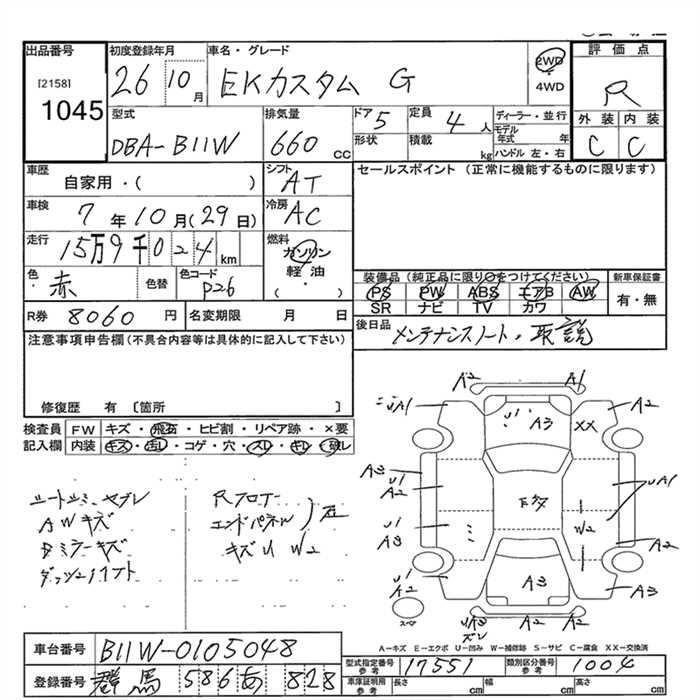 出品番号 初度登録年月 車名・グレード 2WD 評価点
[2158] 26 10月 EKカスタム G ・ R
1045 4WD
型式 排気量 ドア 5 定員 4人 ディーラー・並行 外装 内装
DBA-B11W 660cc 形状 積載 kg モデル年式 年 C C
ハンドル 左・右
車歴 シフト セールスポイント (正常に機能するものに限ります)
自家用・( ) AT
車検 冷房
7年10月(29日) AC
走行 燃料
15万9千024km ガソリン
軽油
・
( )
色 赤 色替 色コード P26
装備品(純正品に限り○をつけてください) 新車保証書
PS PW ABS エアB AW 有・無
SR ナビ TV カワ
R券 8060円 名変期限 月 日
後日品 メンテナンスノート・取説
注意事項申告欄(不具合内容等は具体的に記入して下さい)
修復歴 有 〔箇所 〕
検査員 FW キズ・飛石・ヒビ割・リペア跡・×要
記入欄 内装 キズ・汚レ・コゲ・穴・スレ・キレ・破レ
A2 A1
A2
U1 A3 XX
AWキズ
Rフロアー
エンドパネル 左
キズU W2
A3 U1 A2
UA1
A2
U1 A3
W2
A2
U1 A2
A3
A3
スペア
A2 A2
UA3 ズレ
A-キズ E-エクボ U-凹み W-補修跡 S-サビ C-腐食 XX-交換済
車台番号 B11W-0105048
型式指定番号 参考 17551 類別区分番号 参考 1004
登録番号 群馬 586 あ 828
車庫証明用 参考 長さ cm 幅 cm 高さ cm